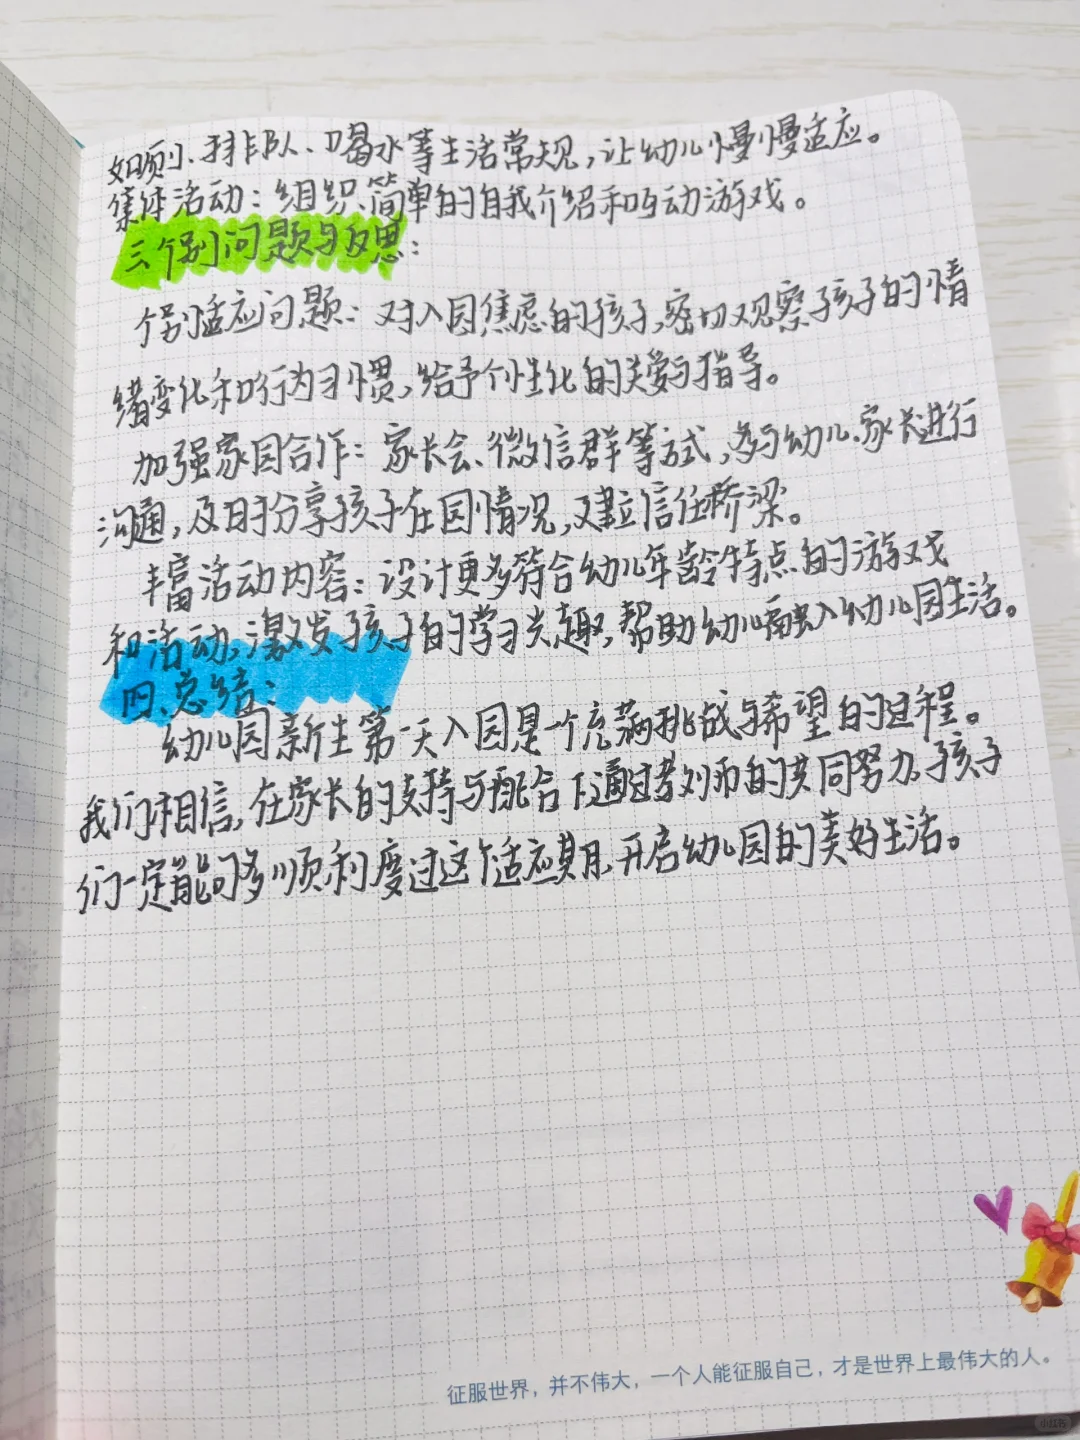 如厕、排队、喝水等生活常规，让幼儿慢慢适应。
集体活动：组织简单的自我介绍和互动游戏。
三个别问题与反思：
个别适应问题：对入园焦虑的孩子，密切观察孩子的情
绪变化和行为习惯，给予个性化的关爱与指导。
加强家园合作：家长会、微信群等方式，多与幼儿家长进行
沟通，及时分享孩子在园情况，建立信任桥梁。
丰富活动内容：设计更多符合幼儿年龄特点的游戏
和活动，激发孩子的学习兴趣，帮助幼儿融入幼儿园生活。
四、总结：
幼儿园新生第一天入园是一个充满挑战与希望的过程。
我们相信，在家长的支持与配合下通过老师的共同努力，孩子
们一定能够顺利度过这个适应期，开启幼儿园的美好生活。
征服世界，并不伟大，一个人能征服自己，才是世界上最伟大的人。
小红书